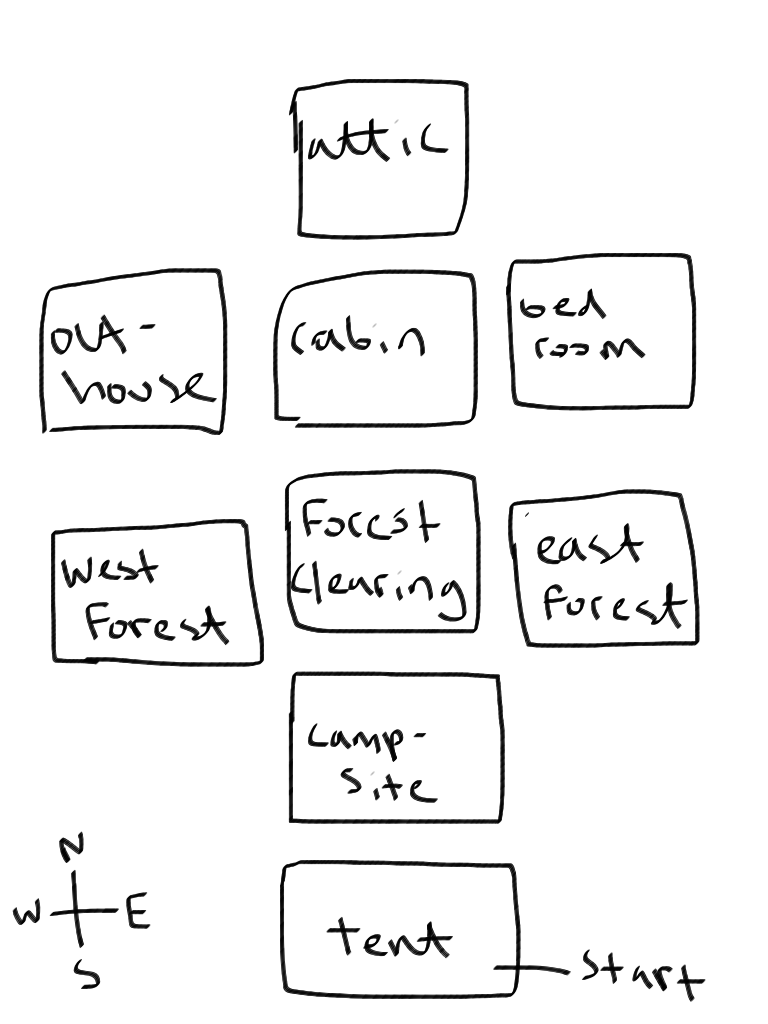 attic
out-
house
cabin
bed
room
west
Forest
Forest
clearing
east
forest
camp-
site
N
W E
S
tent
start